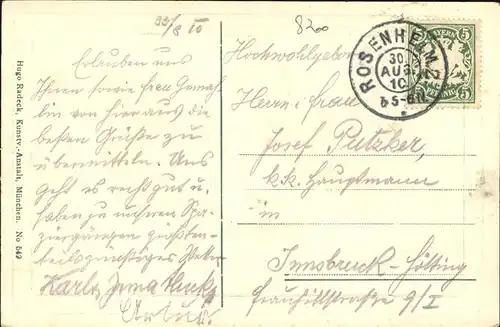 30/8 10
8200
Erlauben uns
Ihnen sowie frau Gemah-
lin von hier aus die
besten Grüße zu
übermitteln. Uns
geht es recht gut u.
haben zu unseren Spa-
ziergängen größten-
teils günstiges Wetter
Karl Irma
Artur.
Hochwohlgeboren
Herrn u. frau
Josef Putzker,
k. k. Hauptmann
in
Innsbruck-Hötting
9/I
ROSENHEIM 2
30.
AUG.
10
5-6N.
BAYERN
5
5
Hugo Radeck, Kunstv.-Anstalt, München. No 549